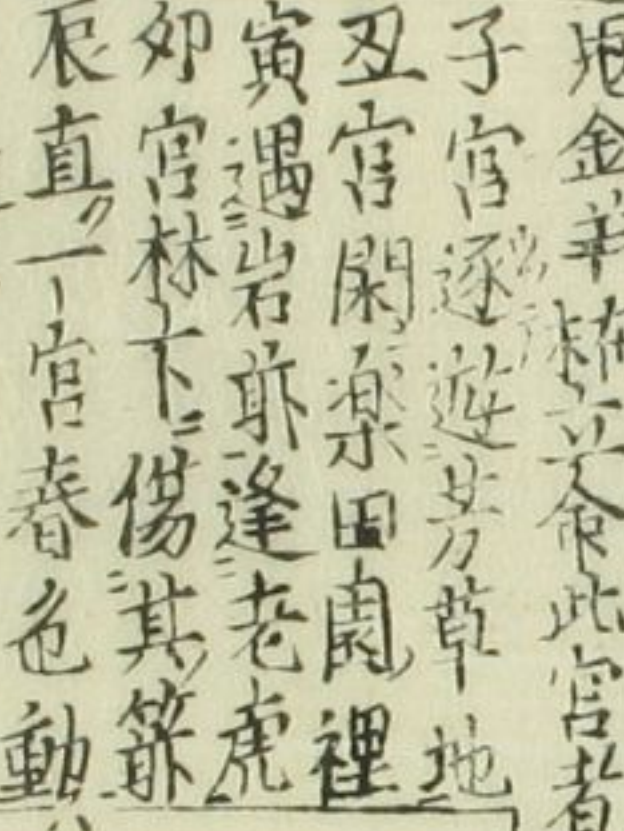 金 命此宮者
子宮逐遊芳草地
丑宮閑楽田園裡
寅遇岩耶逢老虎
卯宮林下傷其箭
辰真一宮春色動